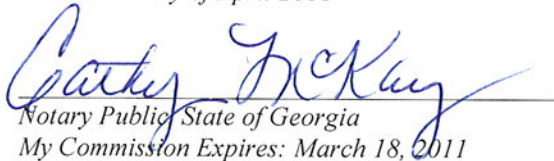 of April
Cathy McKay
Notary Public, State of Georgia
My Commission Expires: March 18, 2011